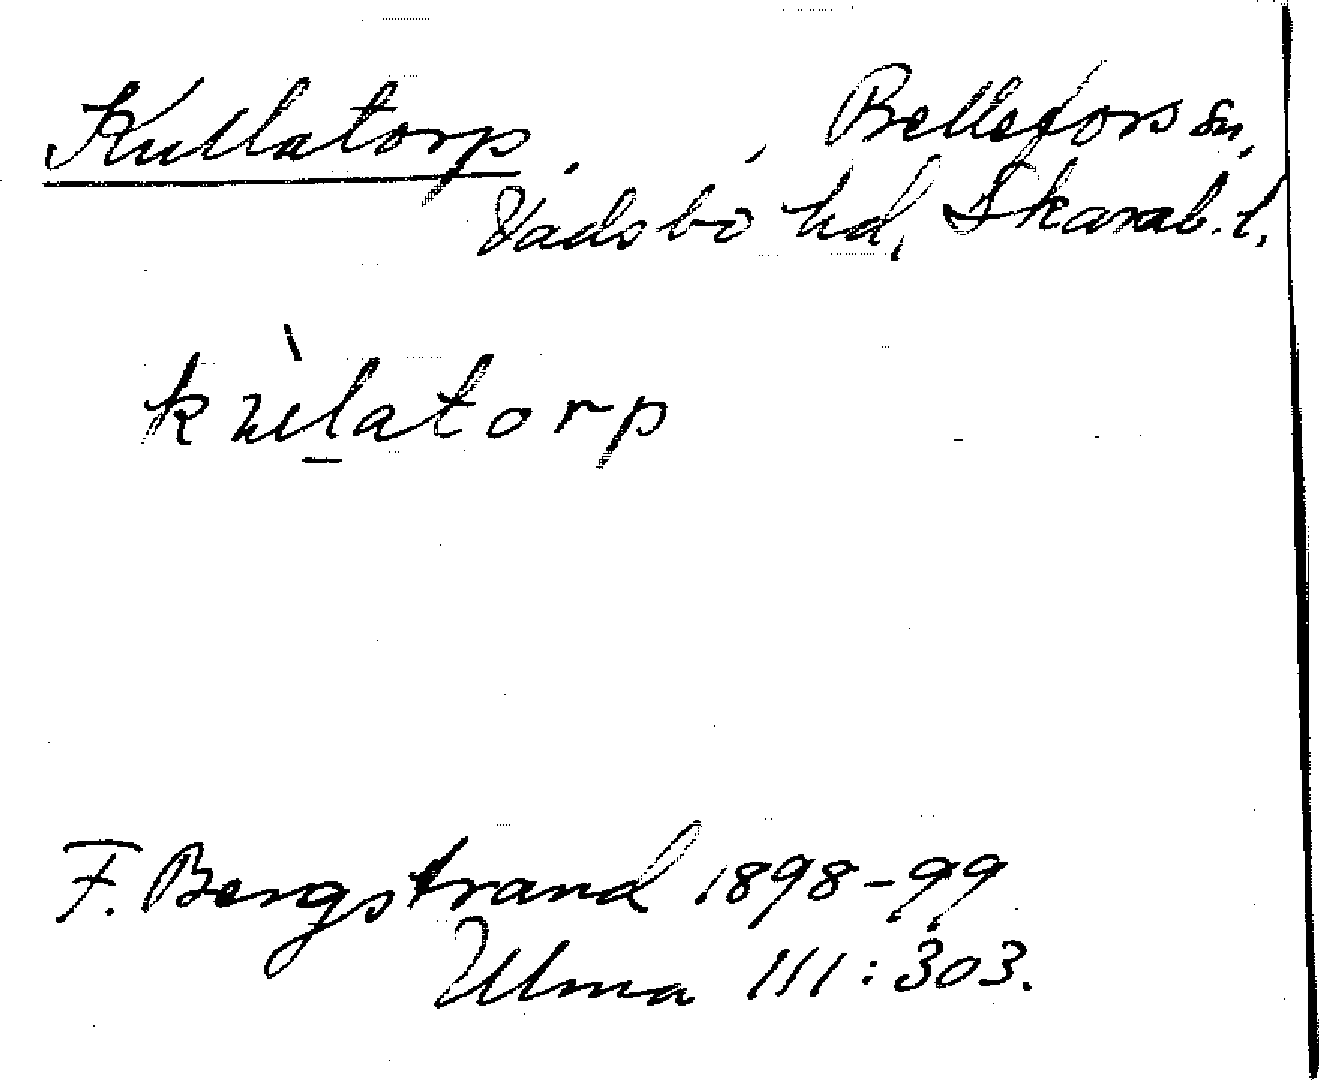 Kullatorp. , Bellefors sn,
Vadsbo hd, Skarab. l.
kùl̲atorp
F. Bergstrand 1898-99
Ulma 111:303.